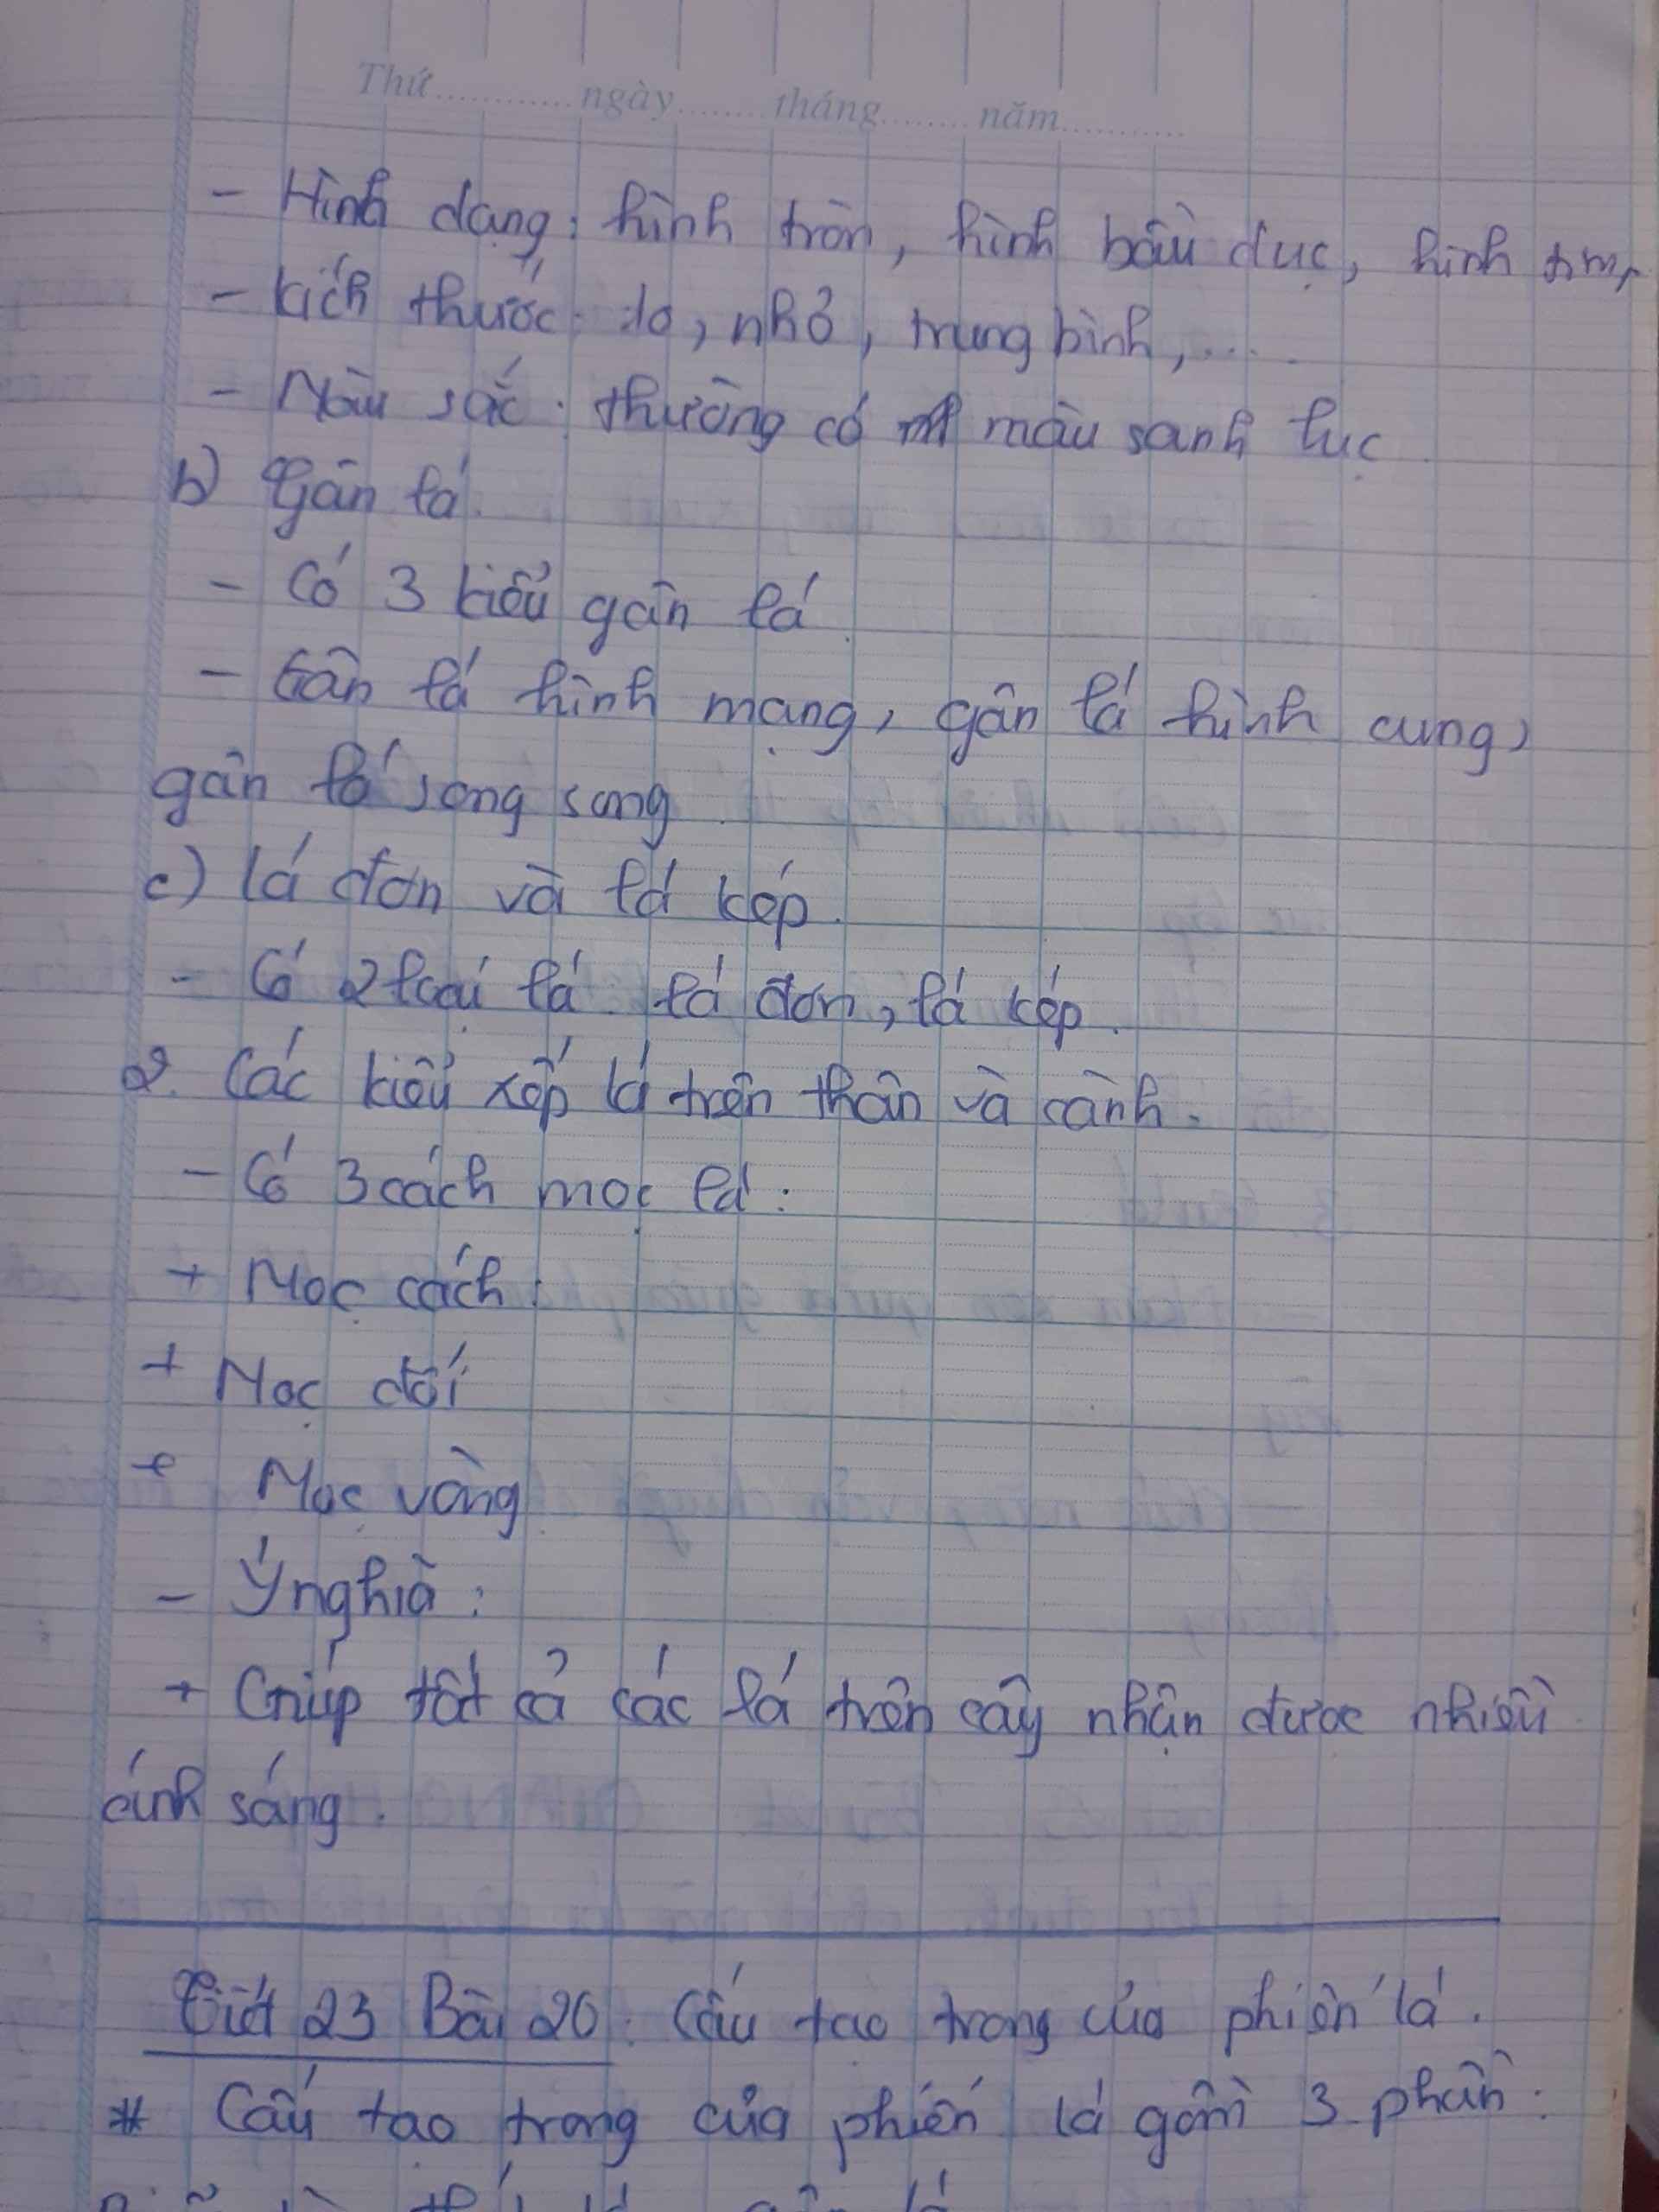 Thứ............ngày........tháng........năm...........
- Hình dạng: hình tròn, hình bầu dục, hình tim,
- kích thước: to, nhỏ, trung bình,....
- Màu sắc: thường có màu sanh lục
b) Gân lá.
- Có 3 kiểu gân lá.
- Gân lá hình mạng, gân lá hình cung,
gân lá song song.
c) lá đơn và lá kép.
- Có 2 loại lá: lá đơn, lá kép.
2. Các kiểu xếp lá trên thân và cành.
- Có 3 cách mọc lá:
+ Mọc cách:
+ Mọc đối
+ Mọc vòng
- Ý nghĩa:
+ Giúp tất cả các lá trên cây nhận được nhiều
ánh sáng.
Tiết 23 Bài 20: Cấu tạo trong của phiến lá.
* Cấu tạo trong của phiến lá gồm 3 phần: